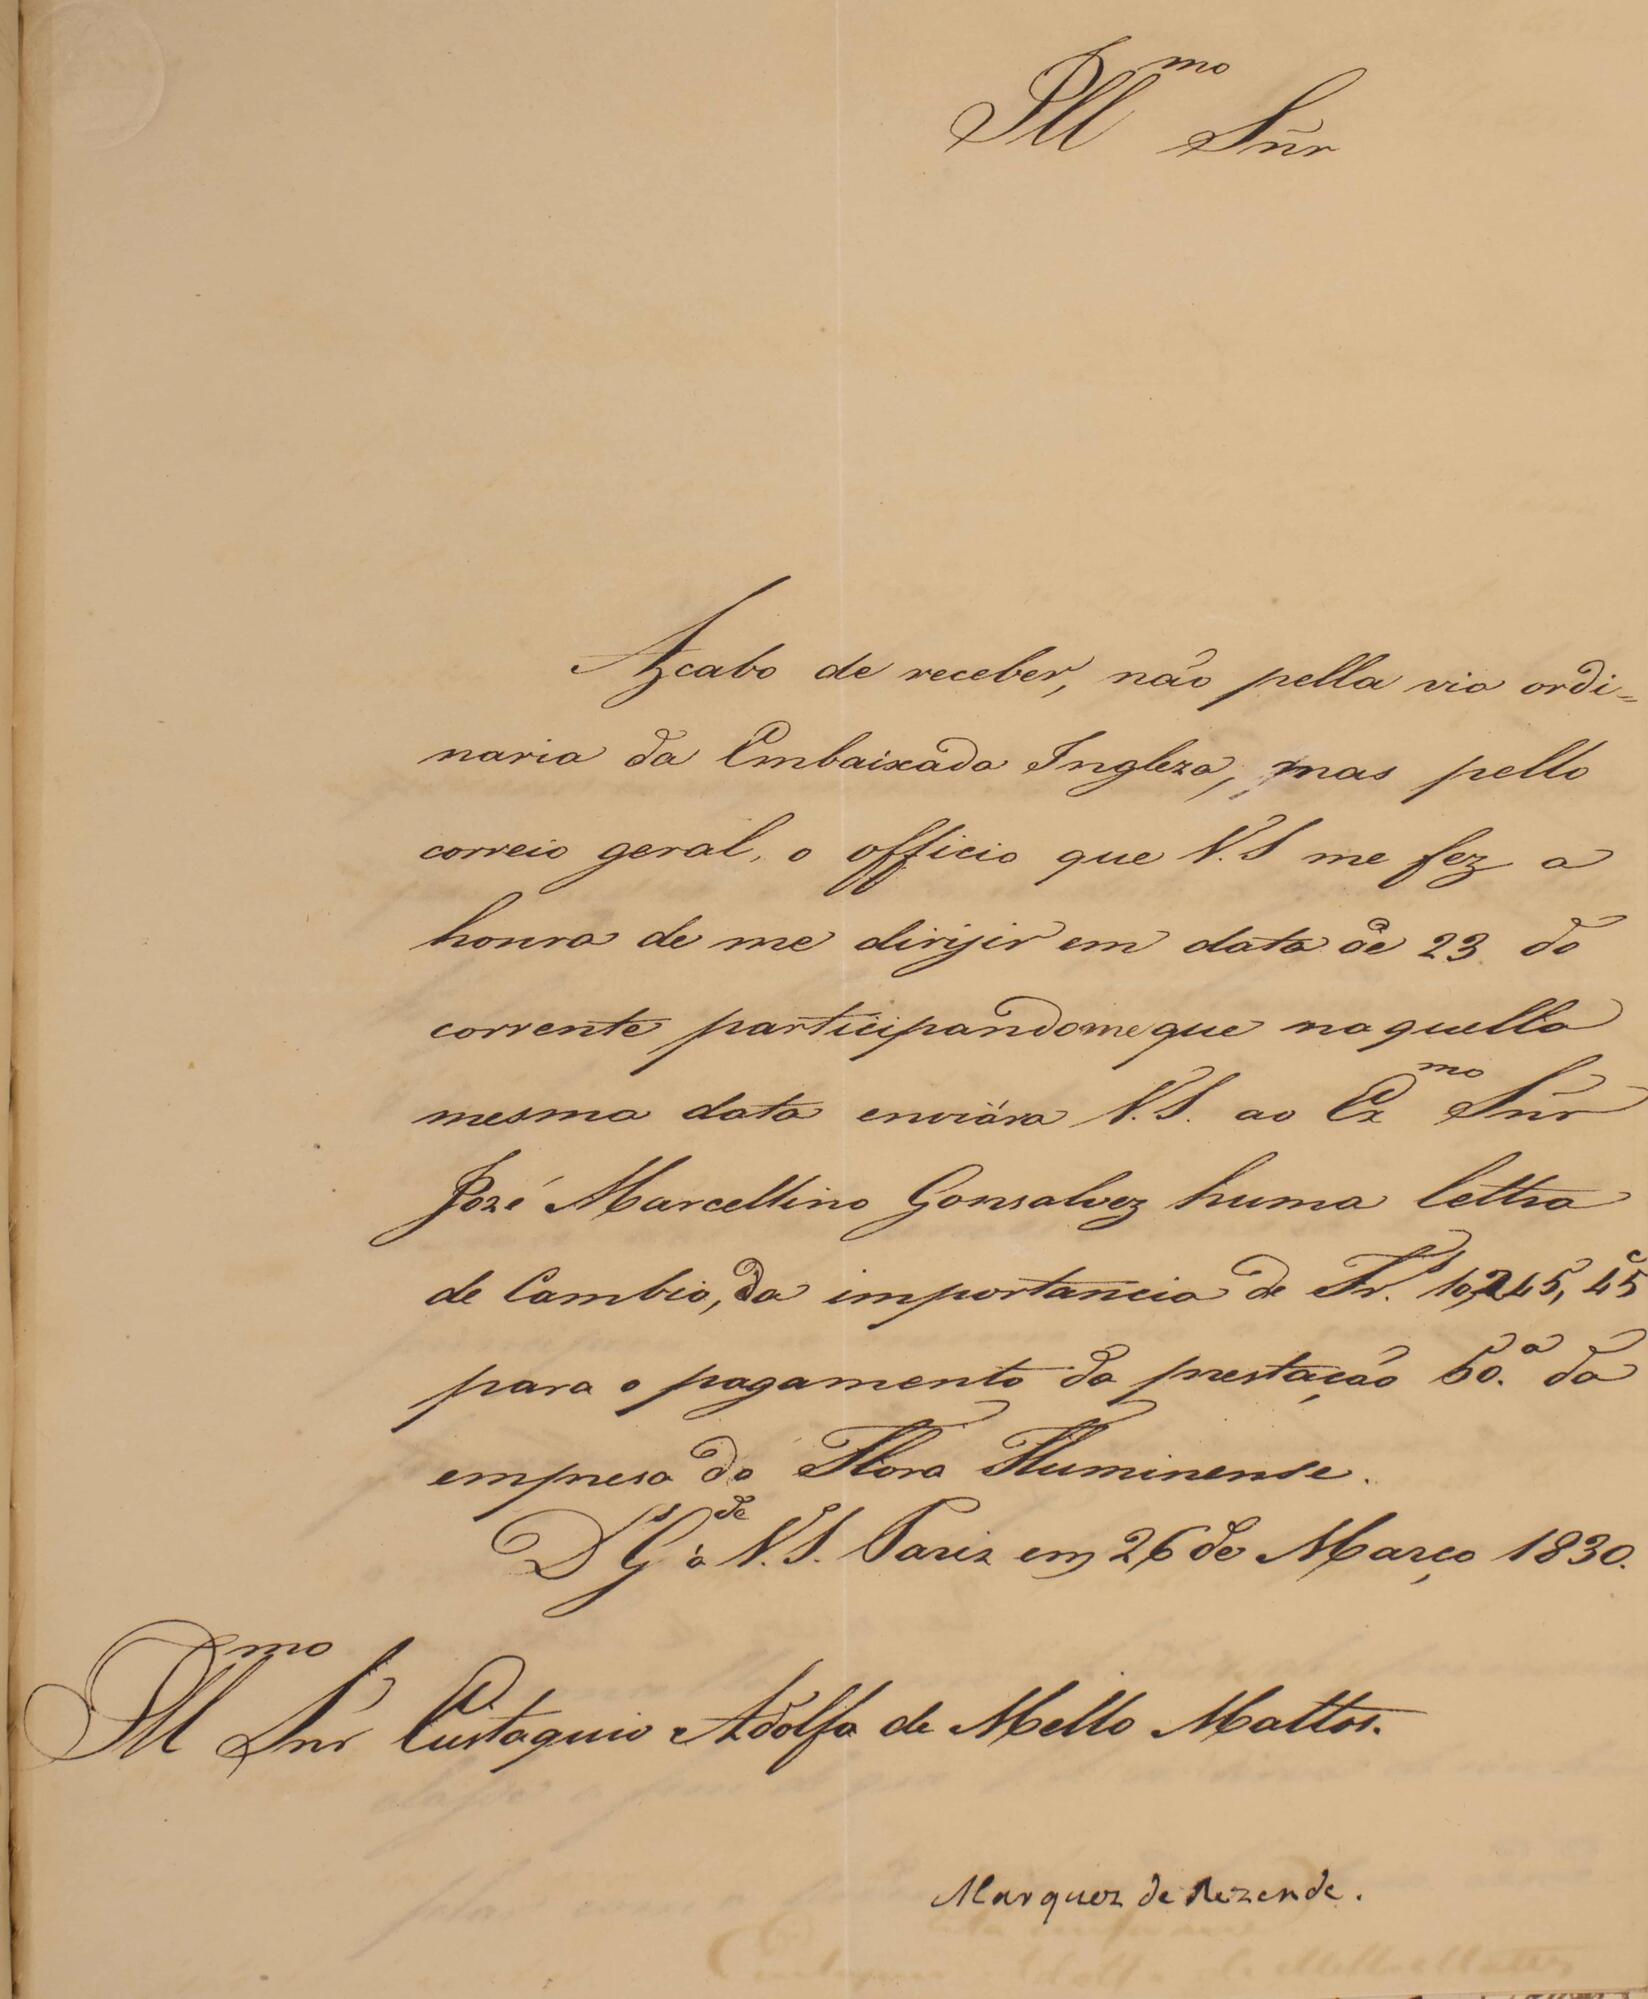 Ill.mo Sñr
Acabo de receber, não pella via ordi=
naria da Embaixada Ingleza, mas pello
correio geral, o officio que V.S me fez a
honra de me dirijir em data de 23 do
corrente participandome que naquella
mesma data enviára V.S. ao Ex.mo Sñr
José Marcellino Gonsalvez huma lettra
de Cambio, da importancia de Fr.s 10,245, 45c
para o pagamento da prestação 60.a da
empresa da Flora Fluminense.
D.s G.de a V.S. Pariz em 26 de Março 1830.
Ill.mo Sñr Eustaquio Adolfo de Mello Mattos.
Marquez de Rezende.